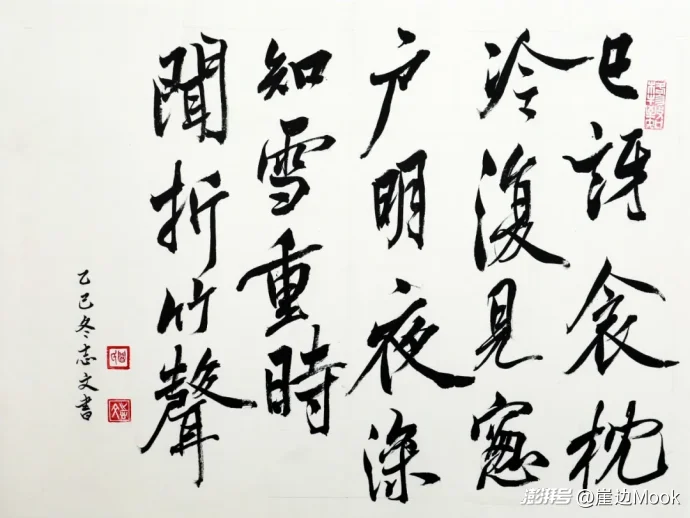 已訝衾枕
冷復見窻
户明夜深
知雪重時
聞折竹聲
乙巳冬志文書
澎湃号 @崖边Mook